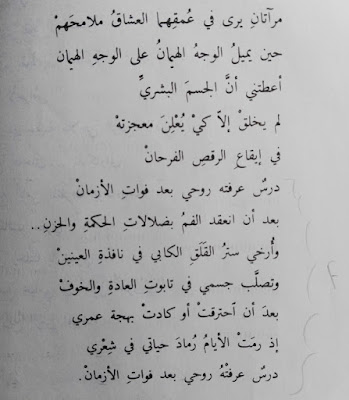 مرآتانِ يرى في عُمقِهِما العشاقُ ملامحَهمْ
حين يميلُ الوجهُ الهيمانُ على الوجهِ الهيمان
أعطتني أنَّ الجسمَ البشريَّ
لم يخلقْ إلاّ كيْ يُعْلِنَ معجزتهْ
في إيقاعِ الرقصِ الفرحانْ
درسٌ عرفته روحي بعد فواتِ الأزمانْ
بعد أن انعقد الفمُ بضلالاتِ الحكمةِ والحزنِ..
وأُرخي سترُ القَلَقِ الكابي في نافذةِ العينينْ
وتصلَّب جسمي في تابوتِ العادةِ والخوفْ
بعدَ أن آحترقتْ أو كادتْ بهجة عمري
إذ رمَتْ الأيامُ رُمادَ حياتي في شِعْري
درسٌ عرفتْهُ روحي بعد فواتِ الأزمانْ.